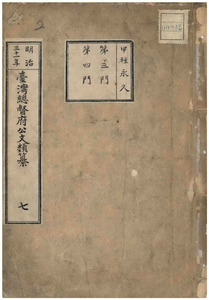 明治
三十一年
臺灣總督府公文類纂
七
甲種永久
第三門
第四門